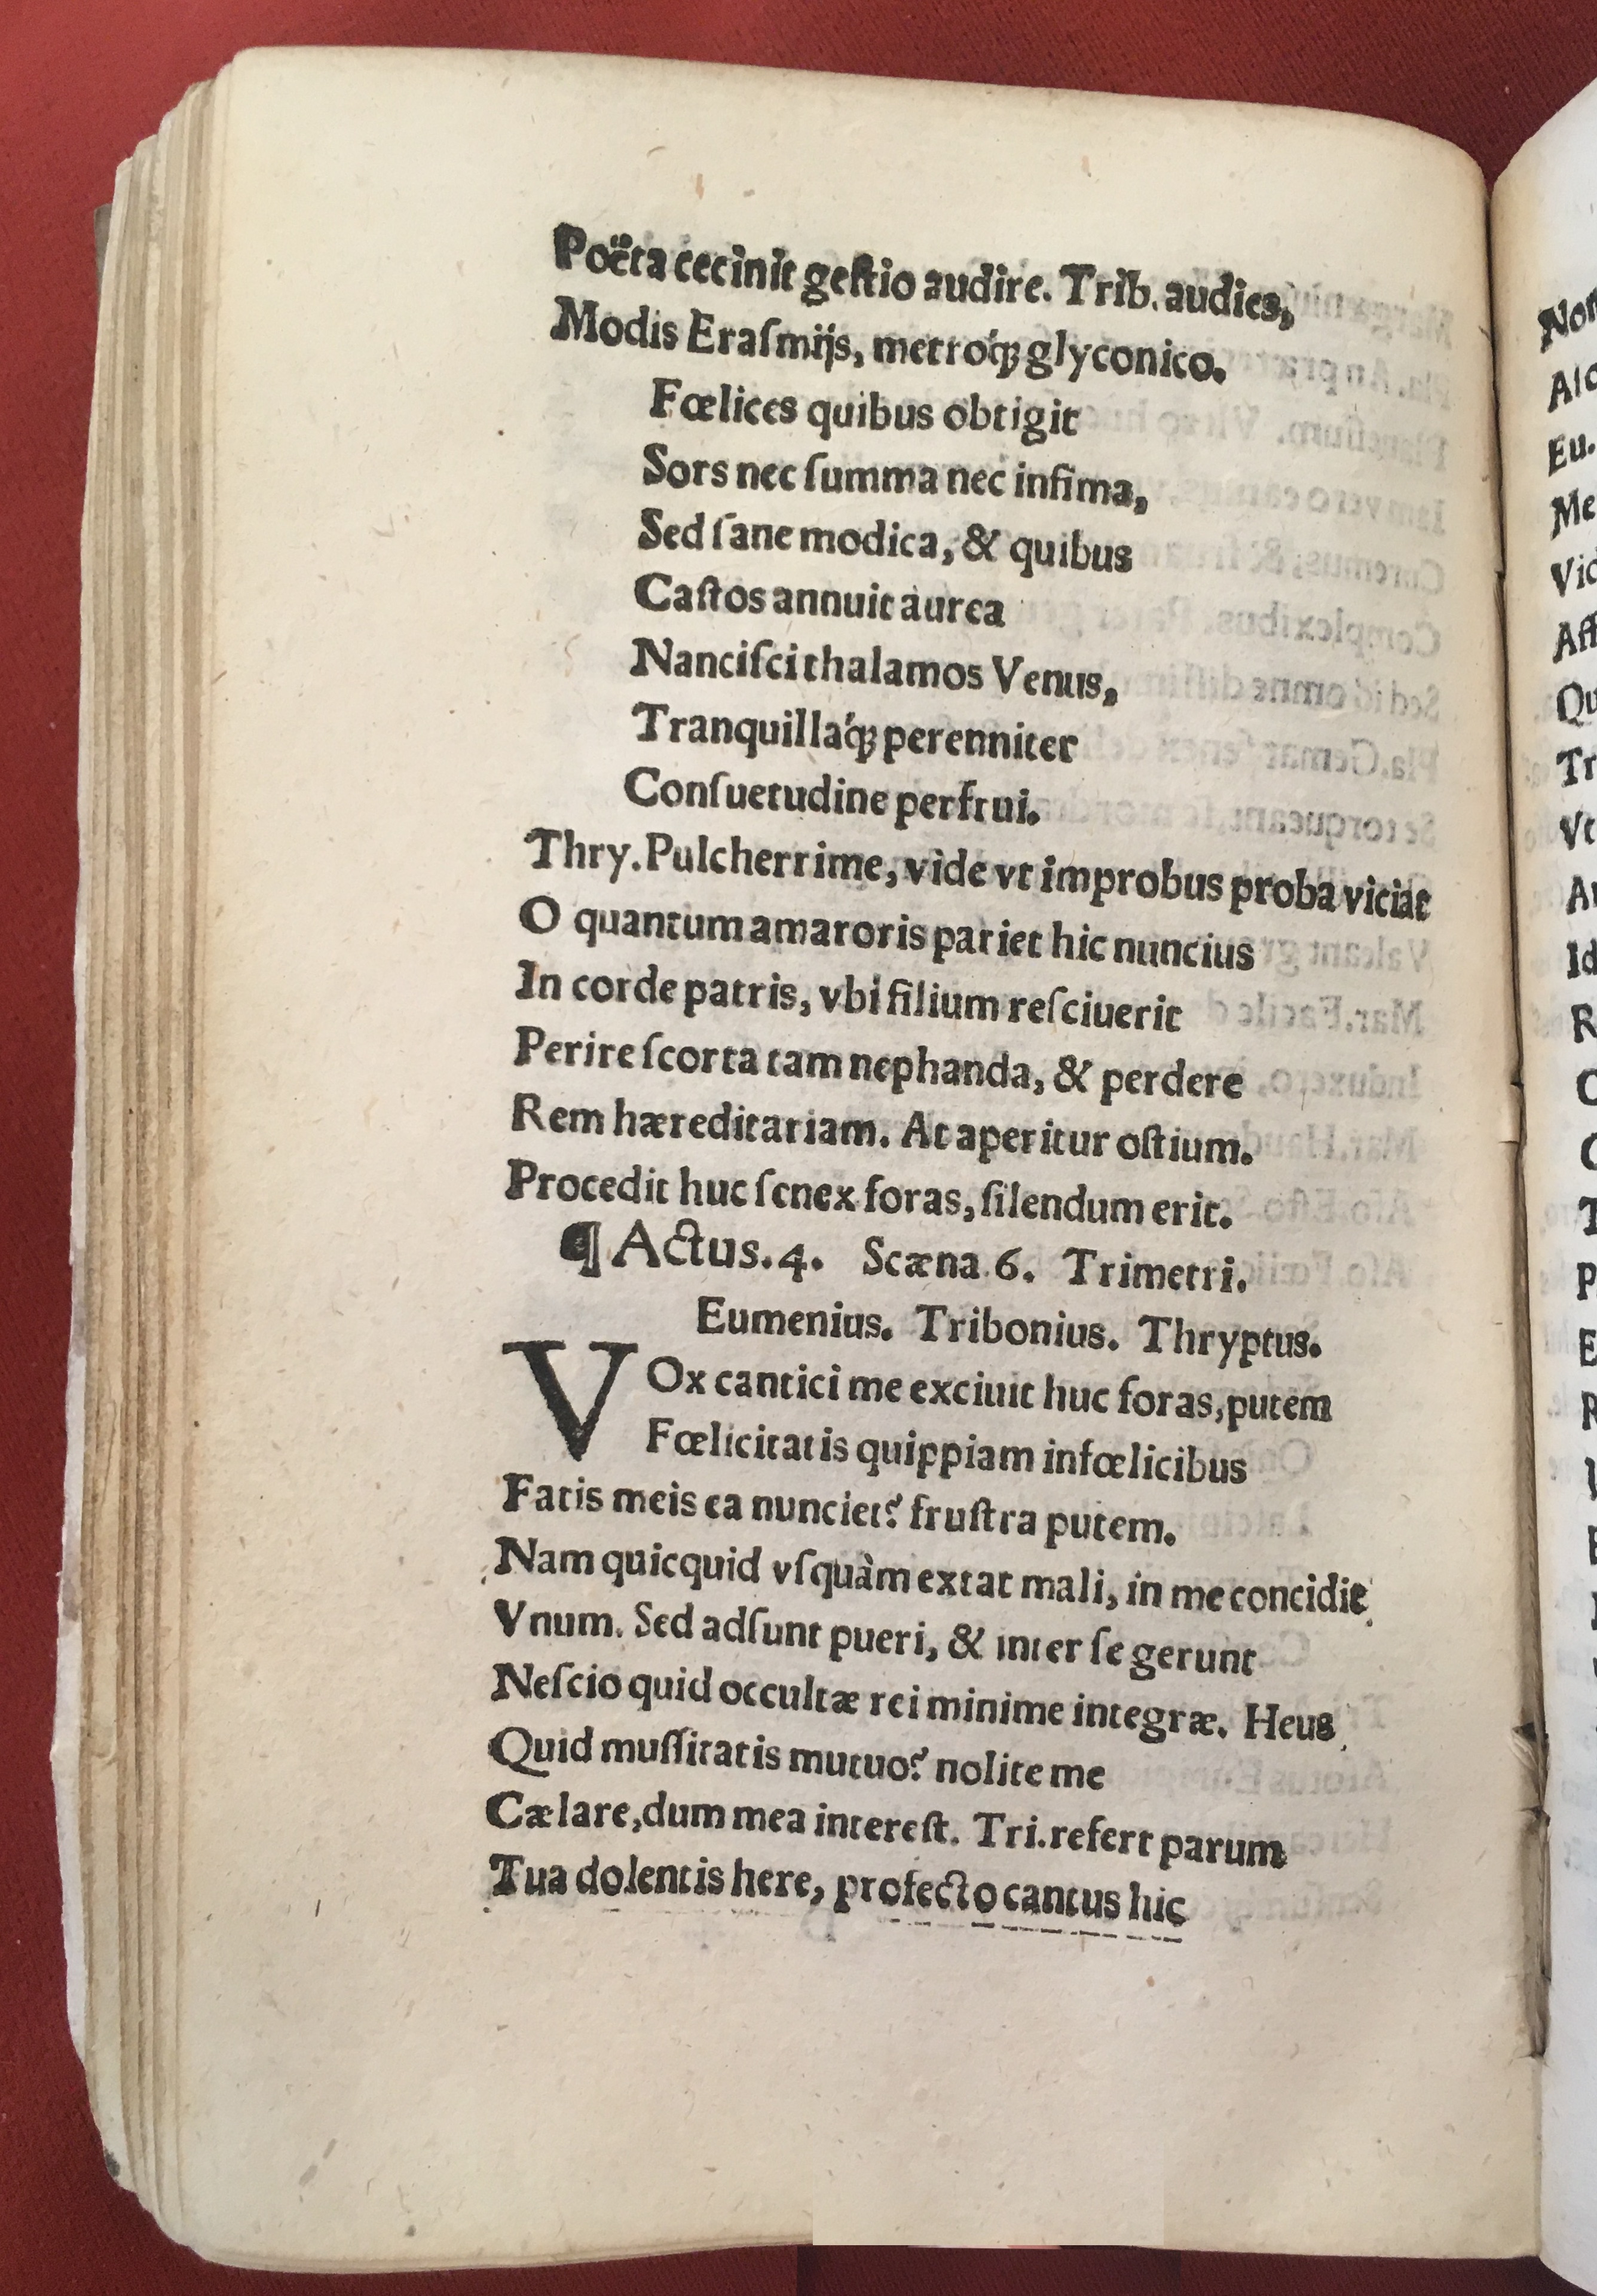 Poëta cecinit geſtio audire. Trib. audies,
Modis Eraſmijs, metroq́ꝫ glyconico.
Fœlices quibus obtigit
Sors nec ſumma nec infima,
Sed ſane modica, & quibus
Caſtos annuit aurea
Nanciſci thalamos Venus,
Tranquillaq́ꝫ perenniter
Conſuetudine perfrui.
Thry. Pulcherrime, vide vt improbus proba viciat
O quantum amaroris pariet hic nuncius
In corde patris, vbi filium reſciuerit
Perire ſcorta tam nephanda, & perdere
Rem hæreditariam. At aperitur oſtium.
Procedit huc ſenex foras, ſilendum erit.
¶ Actus. 4. Scæna 6. Trimetri.
Eumenius. Tribonius. Thryptus.
VOx cantici me exciuit huc foras, putem
Fœlicitatis quippiam infœlicibus
Fatis meis ea nunciet? fruſtra putem.
Nam quicquid vſquàm extat mali, in me concidit
Vnum. Sed adſunt pueri, & inter ſe gerunt
Neſcio quid occultæ rei minime integræ. Heus
Quid muſſitatis mutuo? nolite me
Cælare, dum mea intereſt. Tri. refert parum
Tua dolentis here, profecto cantus hic
Non
Alc
Eu.
Me
Vid
Aff
Qu
Tr
Vt
Id